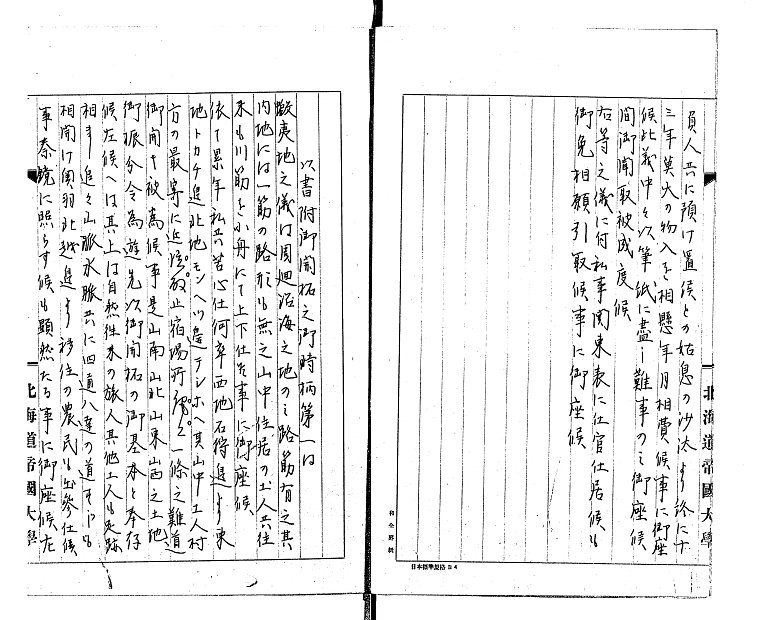 負人共に預け置候との姑息の沙汰より終に十
三年莫大の物入を相懸年月相費候事に御座
候此義中々以筆紙に盡し難事のミ御座候
間御聞取被成度候
右等之儀に付私事関東表に仕官仕居候も
御免相願引取候事に御座候
北海道帝國大學
日本標準規格B4
以書附御開拓之御時柄第一は
蝦夷地之儀は周廻沿海之地のミ路筋有之其
内地には一筋の路形も無之山中住居の土人共往
来も川筋を小舟にて上下仕候事に御座候
依て累年私共苦心仕何卒西地石狩邊より東
地トカチ邊北地モンヘツ邊テシホヘ其山中土人村
方の最寄に近傍取止宿場所一條之難道
御開き被為候事是山南山北山東山西之土地
御振分令為遊先以御開拓の御基本と奉存
候左候へは其上は自然往来の旅人其他土人も足跡
相より追々山脈水脈共に四道八達の道すしも
相開け奥羽北越邊より移住の農民も出参仕候
事秦鏡に照らす候も顕然たる事に御座候左
北海道帝國大學